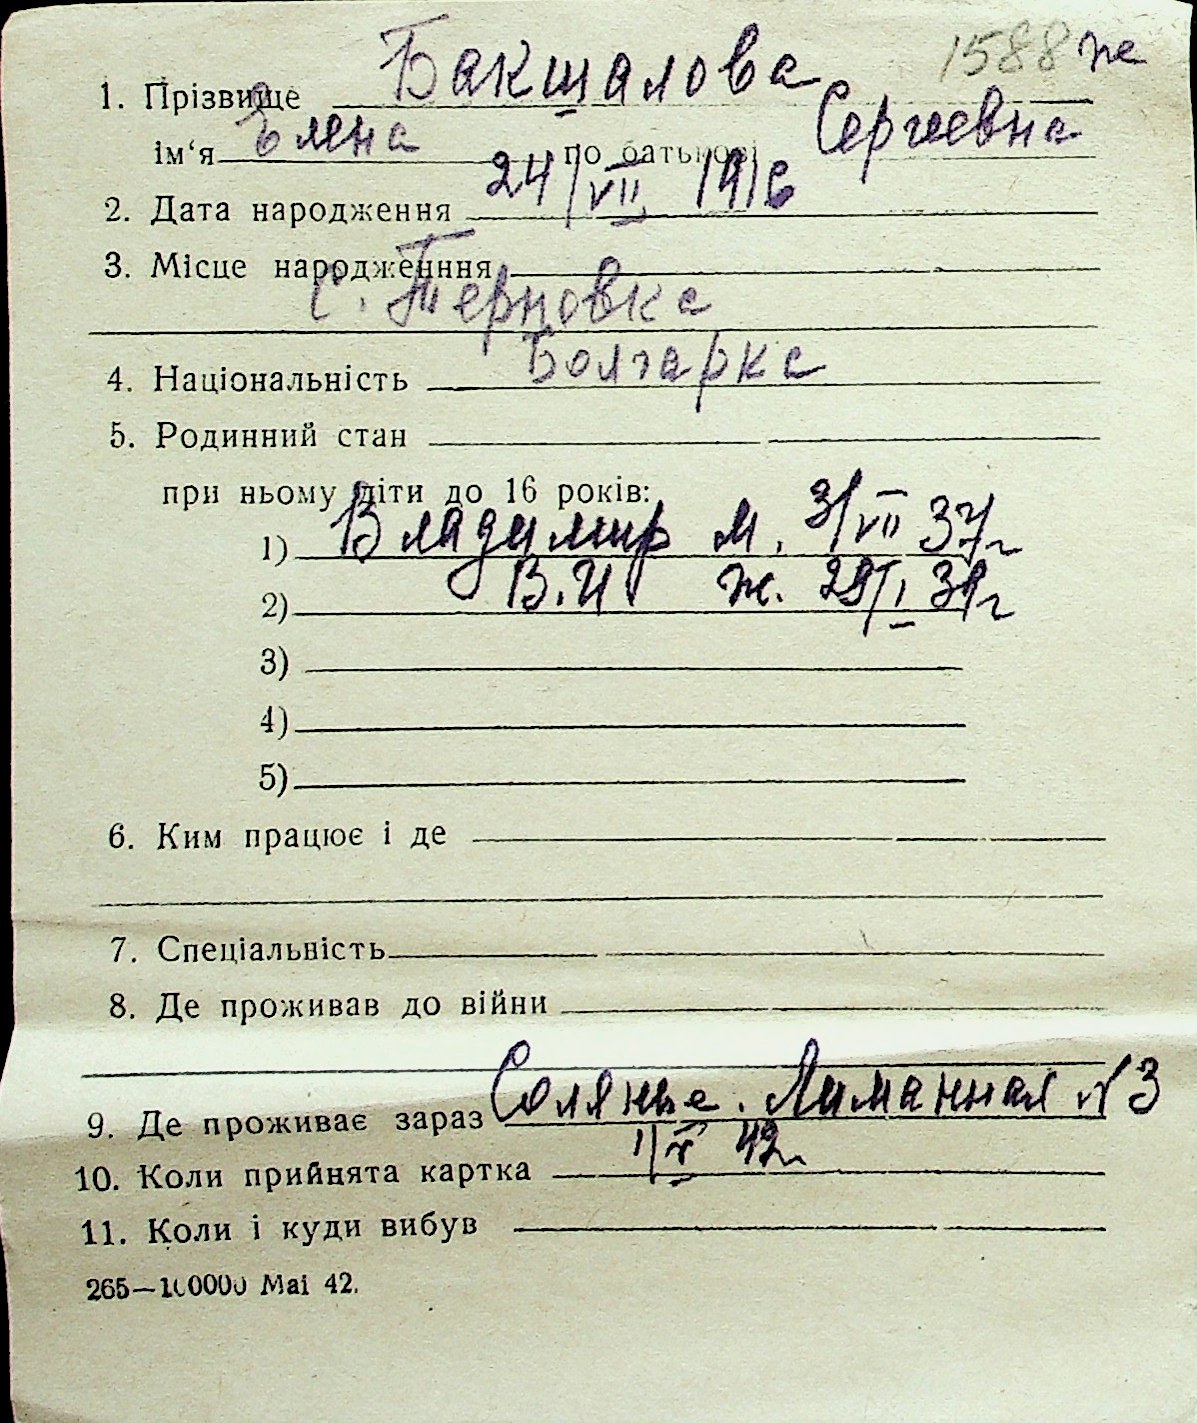 1588 ж
1. Прізвище Бакшалова
ім‘я Елена по батькові Сергеевна
2. Дата народження 24/VII 1916
3. Місце народженння
с. Терновка
4. Національність Болгарка
5. Родинний стан
при ньому діти до 16 років:
1) Владимир м. 31/VII 37г
2) В.И. ж. 29/I 39г
3)
4)
5)
6. Ким працює і де
7. Спеціальність
8. Де проживав до війни
9. Де проживає зараз Соляные. Лиманная №3
10. Коли прийнята картка 1/X 42г
11. Коли і куди вибув
265—100000 Mai 42.